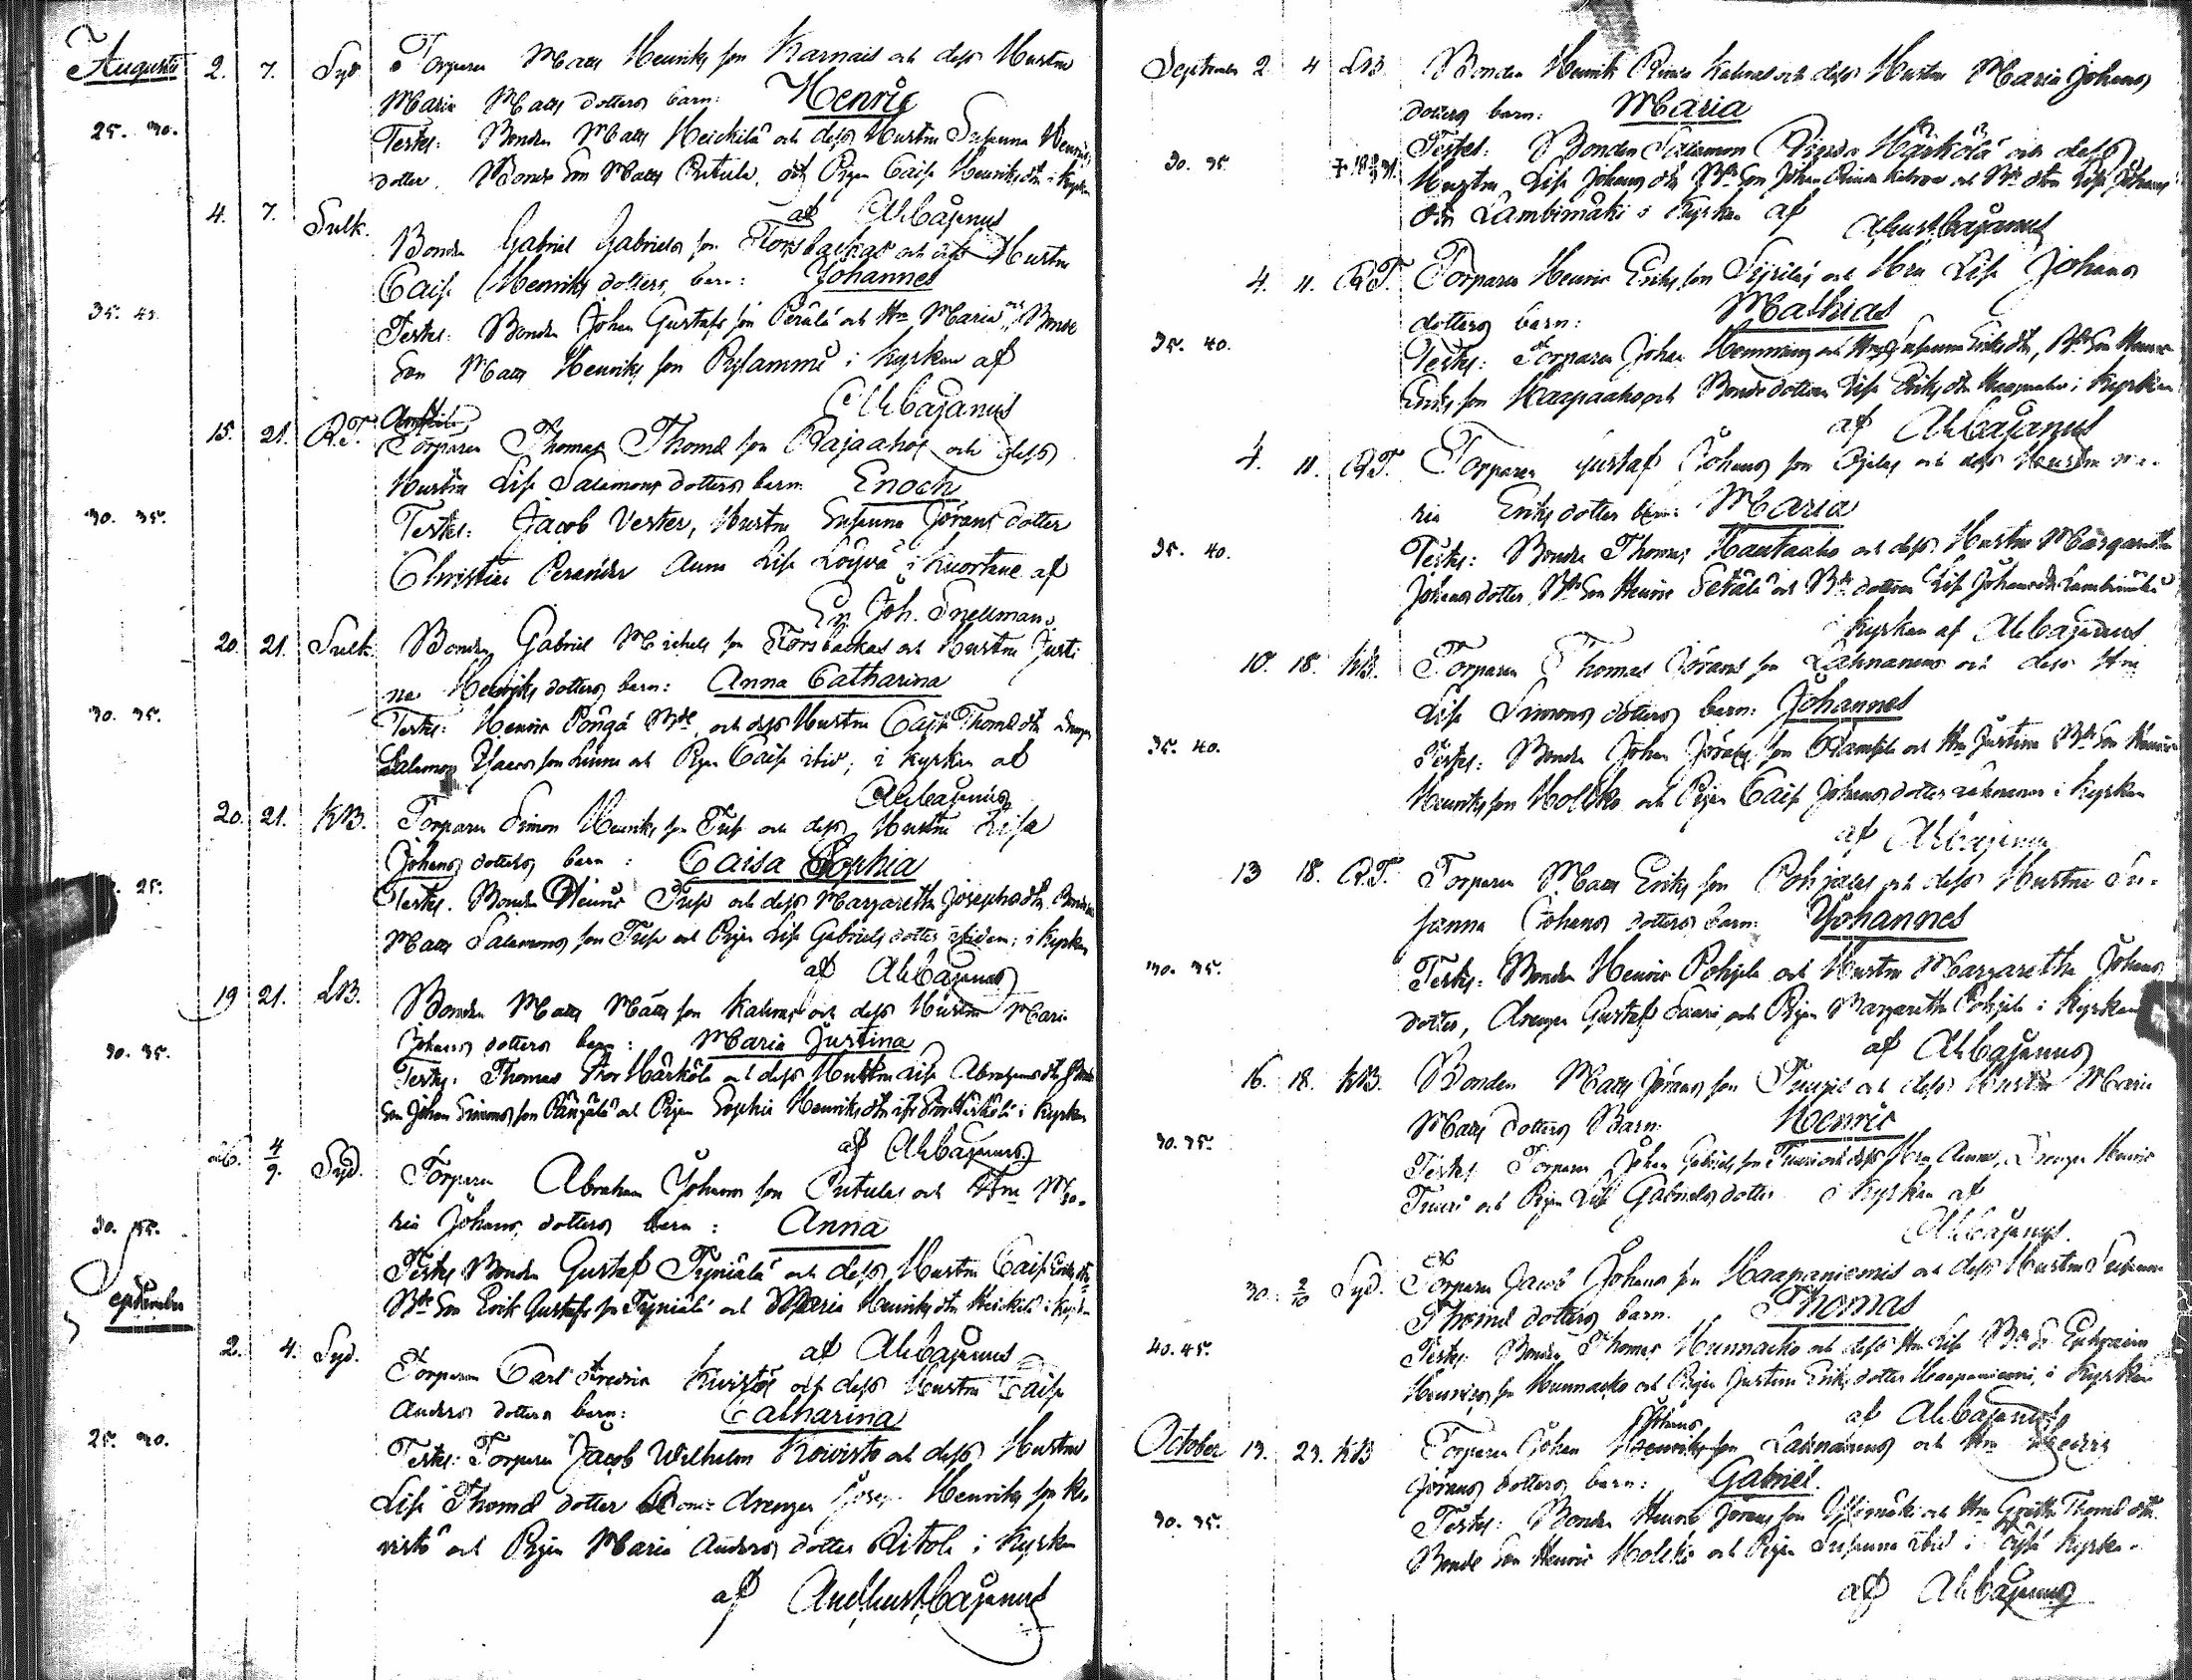 Augusti 2. 7. Syd. Torparen Matts Henriks son Karnais och dess Hustru
Maria Matts dotters barn: Henric
25. 30. Testes: Bonden Matts Heickilä och dess Hustru Susanna Henriks
dotter, Bonde Son Matts Ritula, och Pigan Caisa Henriks dtr i Kyrkan
af AhCajanus
4. 7. Sulk. Bonden Gabriel Gabriels son Forsbackas och dess Hustru
Caisa Henriks dotters barn: Johannes
35. 40. Testes: Bonden Johan Gustafs son Perälä och Hn Maria, Bonde
Son Matts Henriks son Pylammi i Kyrkan af
AhCajanus
15. 21. R.T. Torparen Thomas Thomæ son Rajaahos och dess
Hustru Lisa Salomons dotters barn: Enoch
30. 35. Testes: Jacob Vester, Hustru Susanna Jörans dotter
Christian Perander Anna Lisa Löyvä i Kuortane af
Joh. Snellman.
20. 21. Sulk. Bonden Gabriel Michels son Forsbackas och Hustru Justi
na Henriks dotters barn: Anna Catharina
30. 35. Testes: Henric Pöngä Bde, och dess Hustru Caisa Thomæ dtr Drengen
Salomon Isaacs son Linna och Pigan Caisa ibid, i Kyrkan af
AhCajanus
20. 21. KB. Torparen Simon Henriks son Tust och dess Hustru Lisa
Johans dotters barn: Caisa Sophia
25. Testes. Bonden Henric och dess Margaretha Josephs dtr, Bonde
Matts Salomons son och Pigan Lisa Gabriels dotter ibidem; i Kyrkan
af AhCajanus
19 21. LB. Bonden Matts Matts son Kalvas och dess Hustru Maria
Johans dotters barn: Maria Justina
30. 35. Testes: Thomas Stor Härkölä och dess Hustru Lisa Abrahams dtr, Bonde
Son Johan Simons son och Pigan Sophia Henriks dtr Stor Härkölä i Kyrkan
af AhCajanus
26. 4/9. Syd. Torparen Abraham Johans son Ritulas och Hn Ma-
ria Johans dotters barn: Anna
30. 35. Testes Bonden Gustaf Tyynälä och dess Hustru Caisa Eriks dtr
Bde Son Erik Gustafs son Tyynälä och Maria Henriks dtr Heickilä i Kyrkan
af AhCajanus
September
2. 4. Syd. Torparen Carl Fredric Kivistös och dess Hustru Caisa
Anders dotters barn: Catharina
25. 30. Testes: Torparen Jacob Wilhelm Koivisto och dess Hustru
Lisa Thomæ dotter drengen Joseph Henriks son Ki-
vistö och Pigan Maria Anders dotter Ritola i Kyrkan
af AndhustCajanus
September 2 4 LB. Bonden Henrik Rinda Kalvas och dess Hustru Maria Johans
dotters barn: Maria
30. 35. Testes: Bonden Salomon Rinda Härkölä och dess
Hustru Lisa Johans dtr Bde Son Johan Rinda Kalvas och Bde dtr Lisa Johans
dtr Lambimäki i Kyrkan af AhustCajanus
4. 11. R.T. Torparen Henric Eriks son och Hru Lisa Johans
dotters barn: Mathias
35. 40. Testes: Torparen Johan Hemming och Hru Susanna Eriks dtr, Bde Son Henric
Eriks son Haapaaho och Bonde dottren Lisa Eriks dtr Haapaaho i Kyrkan
af AhCajanus
4. 11. R.T. Torparen Gustaf Johans son och dess Hustru Ma-
ria Eriks dotter barn: Maria
35. 40. Testes: Bonden Thomas Hautaaho och dess Hustru Margaretha
Johans dotter, Bde Son Henric Setälä och Bde dottren Lisa Johans dtr Lambimäki
i Kyrkan af AhCajanus
10. 18. KB. Torparen Thomas Jörans son Lahnanens och dess Hru
Lisa Simons dotters barn: Johannes
35. 40. Testes: Bonden Johan Jörans son och Hn Justina Bde Son Henric
Henriks son Holkko och Pigan Caisa Johans dotter Lahnanen i Kyrkan
af AhCajanus
13 18. R.T. Torparen Matts Eriks son Pohjalas och dess Hustru Su-
sanna Johans dotters barn: Johannes
30. 35. Testes: Bonden Henric Pohjala och Hustru Margaretha Johans
dotter, drengen Gustaf Saari och Pigan Margaretha Pohjala i Kyrkan
af AhCajanus
16. 18. KB. Bonden Matts Jörans son Tuuris och dess Hustru Maria
Matts dotters Barn: Henric
30. 35. Testes Torparen Johan Gabriels son Tuuri och dess Hru Anna, Drengen Henric
Tuuri och Pigan Lisa Gabriels dotter i Kyrkan af
AhCajanus.
30. 2/10 Syd. Torparen Jacob Johans son Haapaniemis och dess Hustru Susanna
Thomæ dotters barn. Thomas
40. 45. Testes: Bonden Thomas Hunnacko och dess Hn Lisa Bde So Ephraim
Henrics son Hunnacko och Pigan Justina Eriks dotter Haapaniemi, i Kyrkan
af AhCajanus
October 13. 23. KB Torparen Johan Johans son Lahnanens och Hru
Jörans dotters barn: Gabriel.
30. 35. Testes: Bonden Henric Jörans son och Hru Gretha Thomæ dtr.
Bonde Son Henric Holkko och Pigan Susanna ibid i Töysä Kyrka.
af AhCajanus